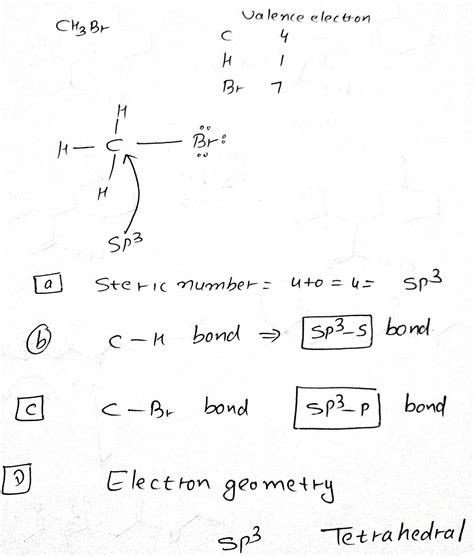 CH3Br
Valence electron
C 4
H 1
Br 7
H
H — C — Br
H
Sp3
a Steric number = 4+0 = 4 = Sp3
b C-H bond ⇒ Sp3-S bond
C C-Br bond Sp3-p bond
D Electron geometry
Sp3 Tetrahedral